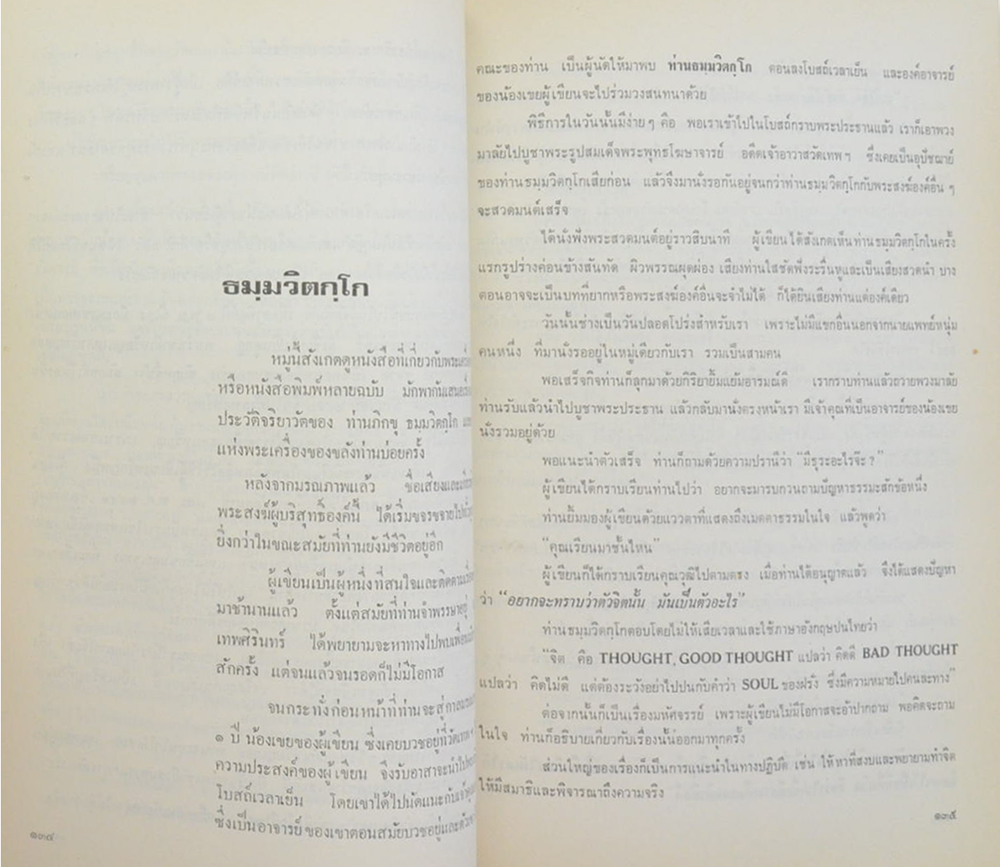 ธมฺมวิตกฺโก
หมู่นี้สังเกตดูหนังสือที่เกี่ยวกับพระเครื่อง
หรือหนังสือพิมพ์หลายฉบับ มักพากันเสนอเรื่อง
ประวัติจริยาวัตของ ท่านภิกขุ ธมฺมวิตกฺโก และ
แห่งพระเครื่องของขลังท่านบ่อยครั้ง
หลังจากมรณภาพแล้ว ชื่อเสียงและ
พระสงฆ์ผู้บริสุทธิ์องค์นี้ ได้เริ่มขจรขจายไป
ยิ่งกว่าในขณะสมัยที่ท่านยังมีชีวิตอยู่อีก
ผู้เขียนเป็นผู้หนึ่งที่สนใจและติดตาม
มาช้านานแล้ว ตั้งแต่สมัยที่ท่านจำพรรษาอยู่
เทพศิรินทร์ ได้พยายามจะหาทางไปพบเพื่อ
สักครั้ง แต่จนแล้วจนรอดก็ไม่มีโอกาส
จนกระทั่งก่อนหน้าที่ท่านจะสู่กาล
๑ ปี น้องเขยของผู้เขียน ซึ่งเคยบวชอยู่ที่วัดเทพฯ
ความประสงค์ของผู้เขียน จึงรับอาสาจะนำไป
โบสถ์เวลาเย็น โดยเขาได้ไปนัดแนะกับ
ซึ่งเป็นอาจารย์ของเขาตอนสมัยบวชอยู่และ
๑๓๔
คณะของท่าน เป็นผู้นัดให้มาพบ ท่านธมฺมวิตกฺโก ตอนลงโบสถ์เวลาเย็น และองค์อาจารย์
ของน้องเขยผู้เขียนจะไปร่วมวงสนทนาด้วย
พิธีการในวันนั้นมีง่ายๆ คือ พอเราเข้าไปในโบสถ์กราบพระประธานแล้ว เราก็เอาพวง
มาลัยไปบูชาพระรูปสมเด็จพระพุทธโฆษาจารย์ อดีตเจ้าอาวาสวัดเทพฯ ซึ่งเคยเป็นอุปัชฌาย์
ของท่านธมฺมวิตกฺโกเสียก่อน แล้วจึงมานั่งรอกันอยู่จนกว่าท่านธมฺมวิตกฺโกกับพระสงฆ์องค์อื่นๆ
จะสวดมนต์เสร็จ
ได้นั่งฟังพระสวดมนต์อยู่ราวสิบนาที ผู้เขียนได้สังเกตเห็นท่านธมฺมวิตกฺโกในครั้ง
แรกรูปร่างค่อนข้างสันทัด ผิวพรรณผุดผ่อง เสียงท่านใสชัดฟังระรื่นหูและเป็นเสียงสวดนำ บาง
ตอนอาจจะเป็นบทที่ยากหรือพระสงฆ์องค์อื่นจะจำไม่ได้ ก็ได้ยินเสียงท่านแต่องค์เดียว
วันนั้นช่างเป็นวันปลอดโปร่งสำหรับเรา เพราะไม่มีแขกอื่นนอกจากนายแพทย์หนุ่ม
คนหนึ่ง ที่มานั่งรออยู่ในหมู่เดียวกับเรา รวมเป็นสามคน
พอเสร็จกิจท่านก็ลุกมาด้วยกิริยายิ้มแย้มอารมณ์ดี เรากราบท่านแล้วถวายพวงมาลัย
ท่านรับแล้วนำไปบูชาพระประธาน แล้วกลับมานั่งตรงหน้าเรา มีเจ้าคุณที่เป็นอาจารย์ของน้องเขย
นั่งรวมอยู่ด้วย
พอแนะนำตัวเสร็จ ท่านก็ถามด้วยความปรานีว่า "มีธุระอะไรจ๊ะ?"
ผู้เขียนได้กราบเรียนท่านไปว่า อยากจะมารบกวนถามปัญหาธรรมะสักข้อหนึ่ง
ท่านยิ้มมองผู้เขียนด้วยแววตาที่แสดงถึงเมตตาธรรมในใจ แล้วพูดว่า
"คุณเรียนมาชั้นไหน"
ผู้เขียนก็ได้กราบเรียนคุณวุฒิไปตามตรง เมื่อท่านได้อนุญาตแล้ว จึงได้แสดงปัญหา
ว่า "อยากจะทราบว่าตัวจิตนั้น มันเป็นตัวอะไร"
ท่านธมฺมวิตกฺโกตอบโดยไม่ให้เสียเวลาและใช้ภาษาอังกฤษปนไทยว่า
"จิต คือ THOUGHT, GOOD THOUGHT แปลว่า คิดดี BAD THOUGHT
แปลว่า คิดไม่ดี แต่ต้องระวังอย่าไปปนกับคำว่า SOUL ของฝรั่ง ซึ่งมีความหมายไปคนละทาง"
ต่อจากนั้นก็เป็นเรื่องมหัศจรรย์ เพราะผู้เขียนไม่มีโอกาสจะอ้าปากถาม พอคิดจะถาม
ในใจ ท่านก็อธิบายเกี่ยวกับเรื่องนั้นออกมาทุกครั้ง
ส่วนใหญ่ของเรื่องก็เป็นการแนะนำในทางปฏิบัติ เช่น ให้หาที่สงบและพยายามทำจิต
ให้มีสมาธิและพิจารณาถึงความจริง
๑๓๕